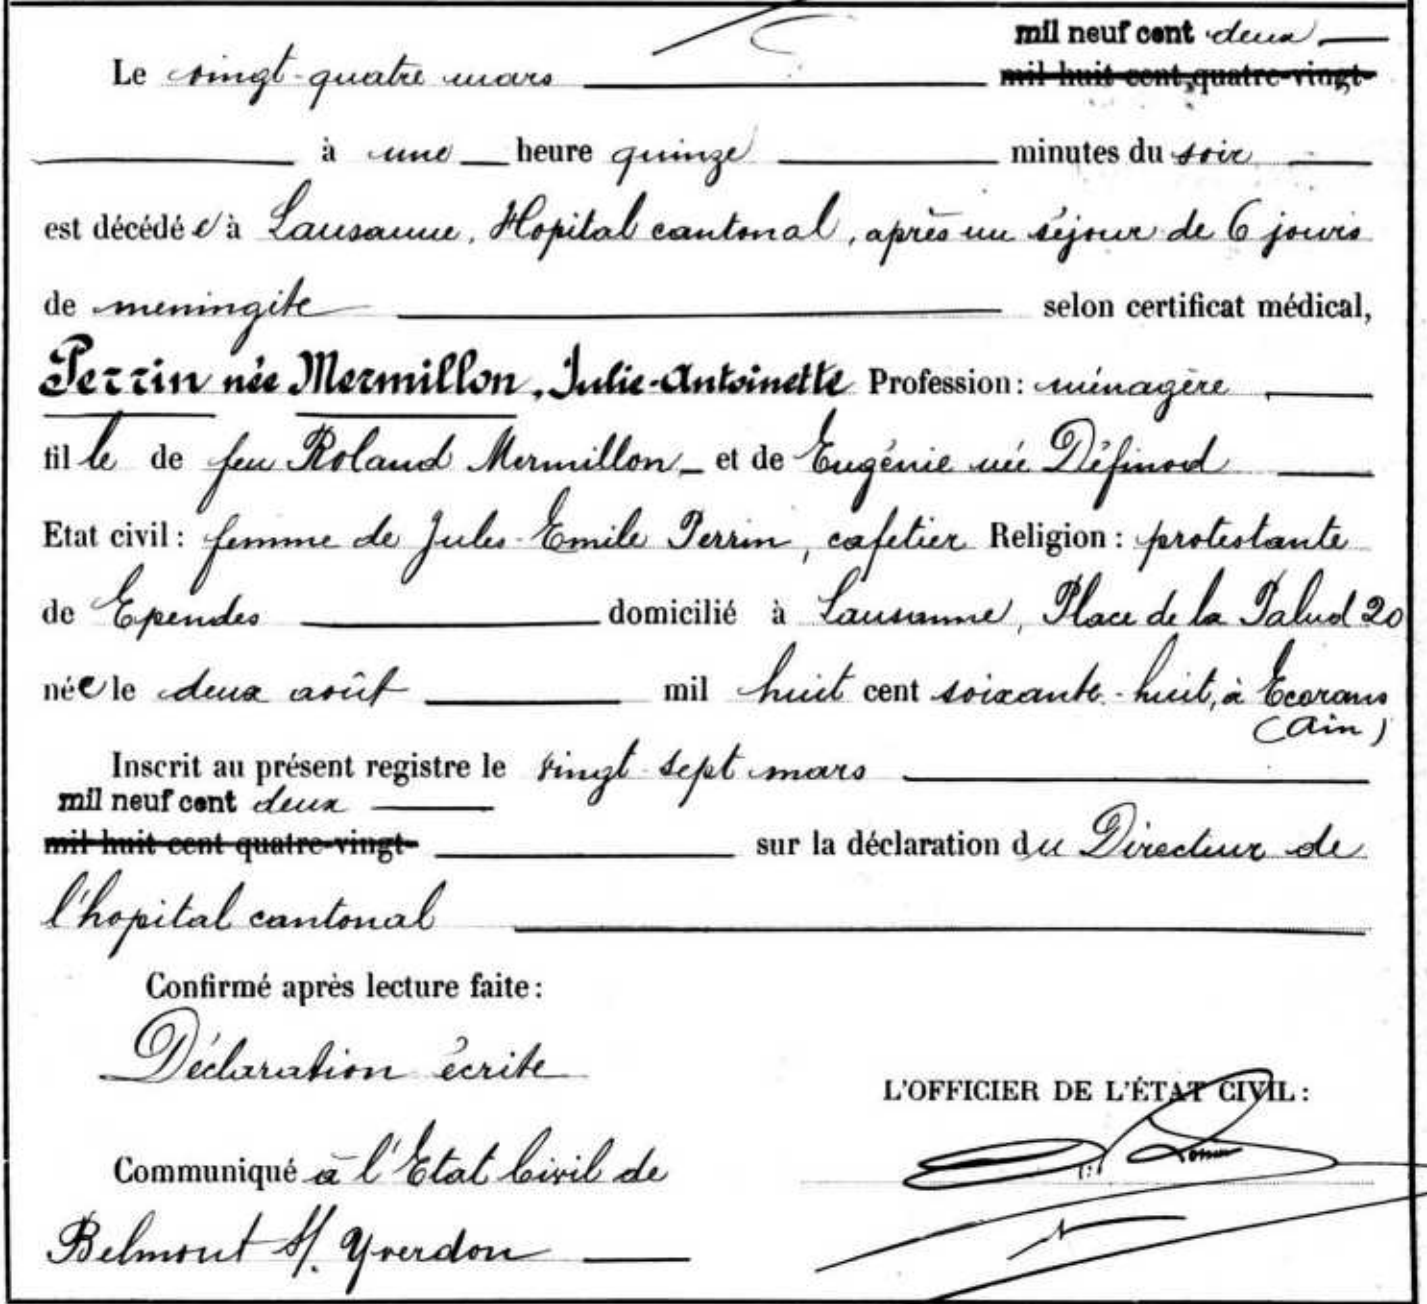 mil neuf cent deux
Le vingt-quatre mars mil huit cent quatre-vingt-
à une heure quinze minutes du soir
est décédée à Lausanne, Hopital cantonal, après un séjour de 6 jours
de meningite selon certificat médical,
Perrin née Mermillon, Julie-Antoinette Profession: ménagère
fille de feu Roland Mermillon et de Eugénie née Définod
Etat civil: femme de Jules-Emile Perrin, cafetier Religion: protestante
de Ependes domicilié à Lausanne, Place de la Palud 20
née le deux août mil huit cent soixante-huit, à Ecorans
(Ain)
Inscrit au présent registre le vingt-sept mars
mil neuf cent deux
mil huit cent quatre-vingt- sur la déclaration du Directeur de
l'hopital cantonal
Confirmé après lecture faite:
Déclaration écrite
L'OFFICIER DE L'ÉTAT CIVIL:
Communiqué à l'Etat Civil de
Belmont s/. Yverdon